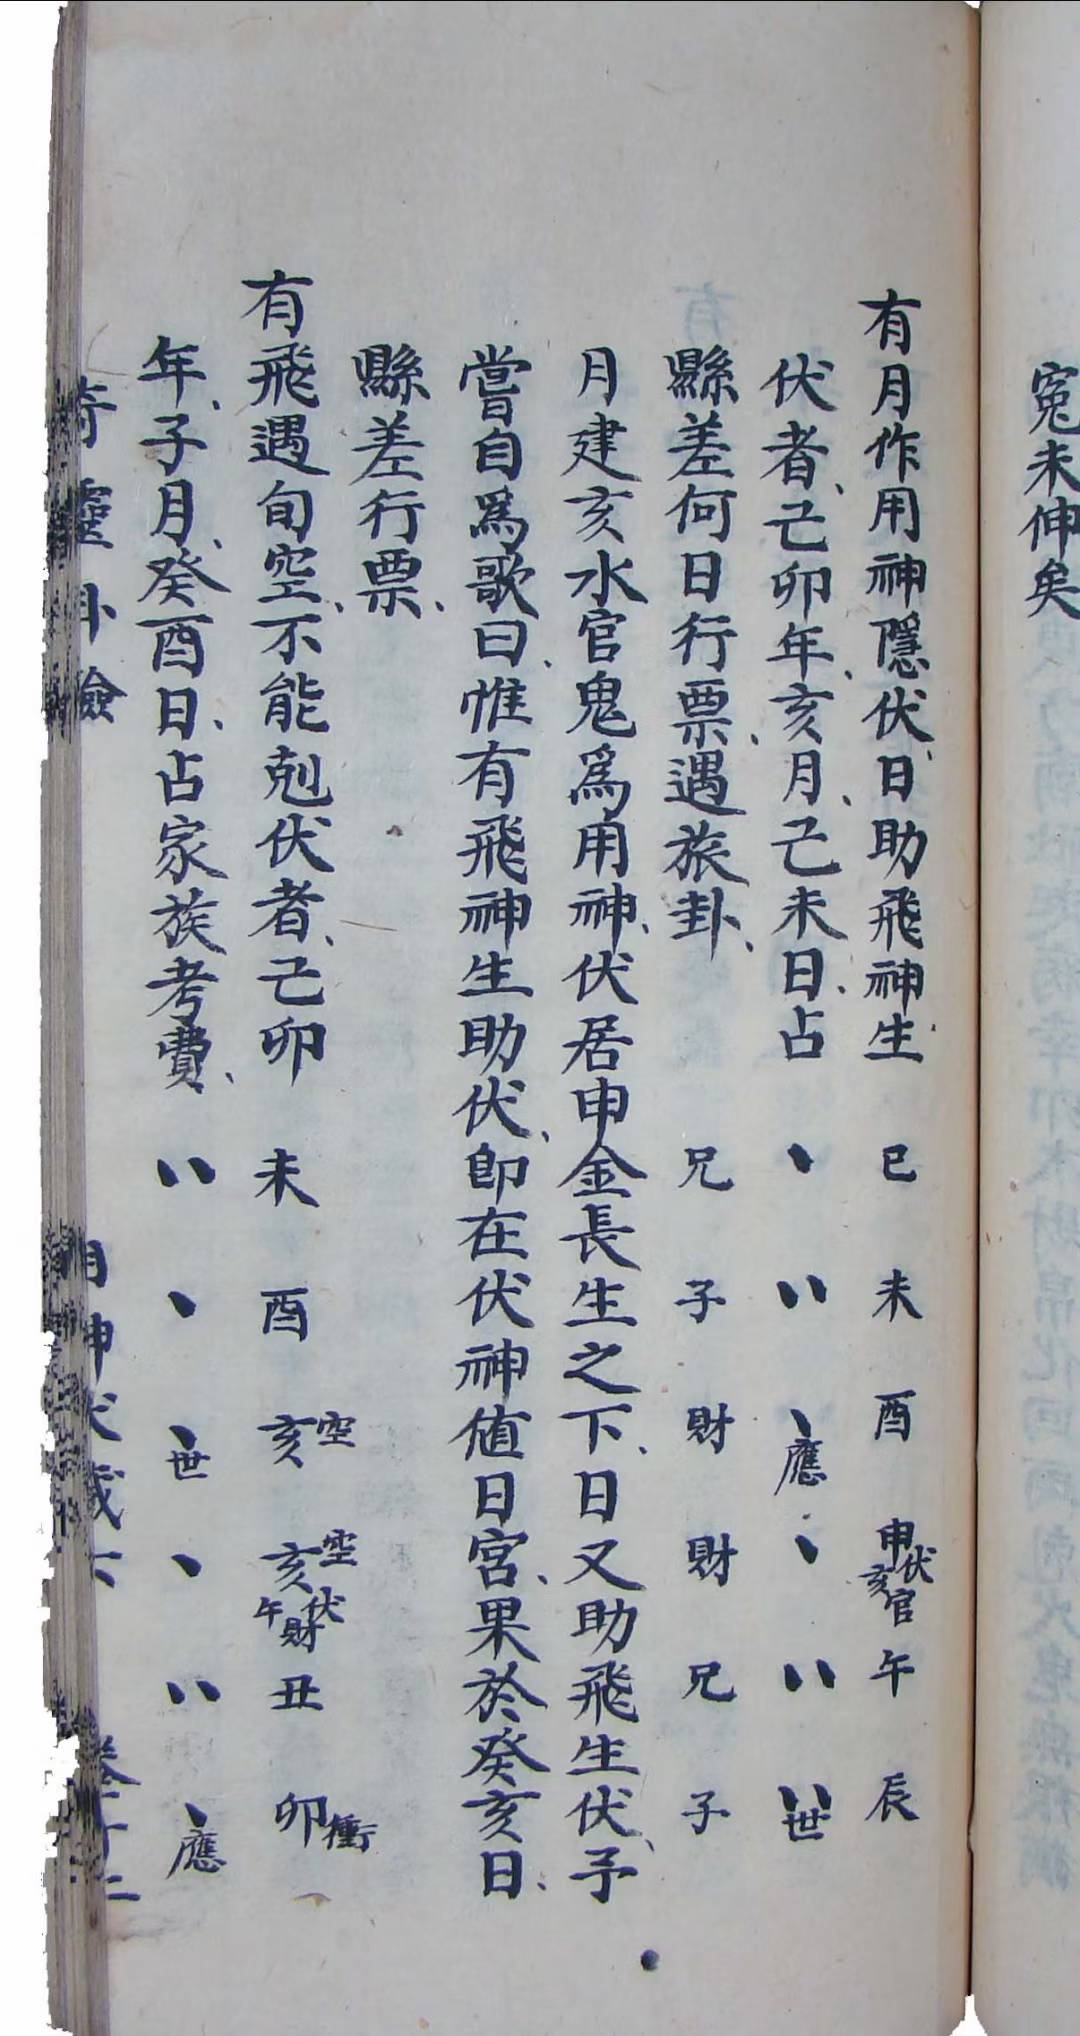 冤未伸矣
有月作用神隱伏、日助飛神生、巳 未 酉 申伏亥官 午 辰
伏者、己卯年、亥月、己未日、占 、 〃 、應 、 〃 〃世
縣差何日行票、遇旅卦、兄 子 財 財 兄 子
月建亥水官鬼爲用神、伏居申金長生之下、日又助飛生伏、予
嘗自爲歌曰、惟有飛神生助伏、卽在伏神值日宮、果於癸亥日、
縣差行票、
有飛遇旬空、不能剋伏者、己卯 未 酉 亥空 亥空伏午財 丑 卯衝
年、子月、癸酉日、占家族考費、〃 、 、世 、 〃 、應